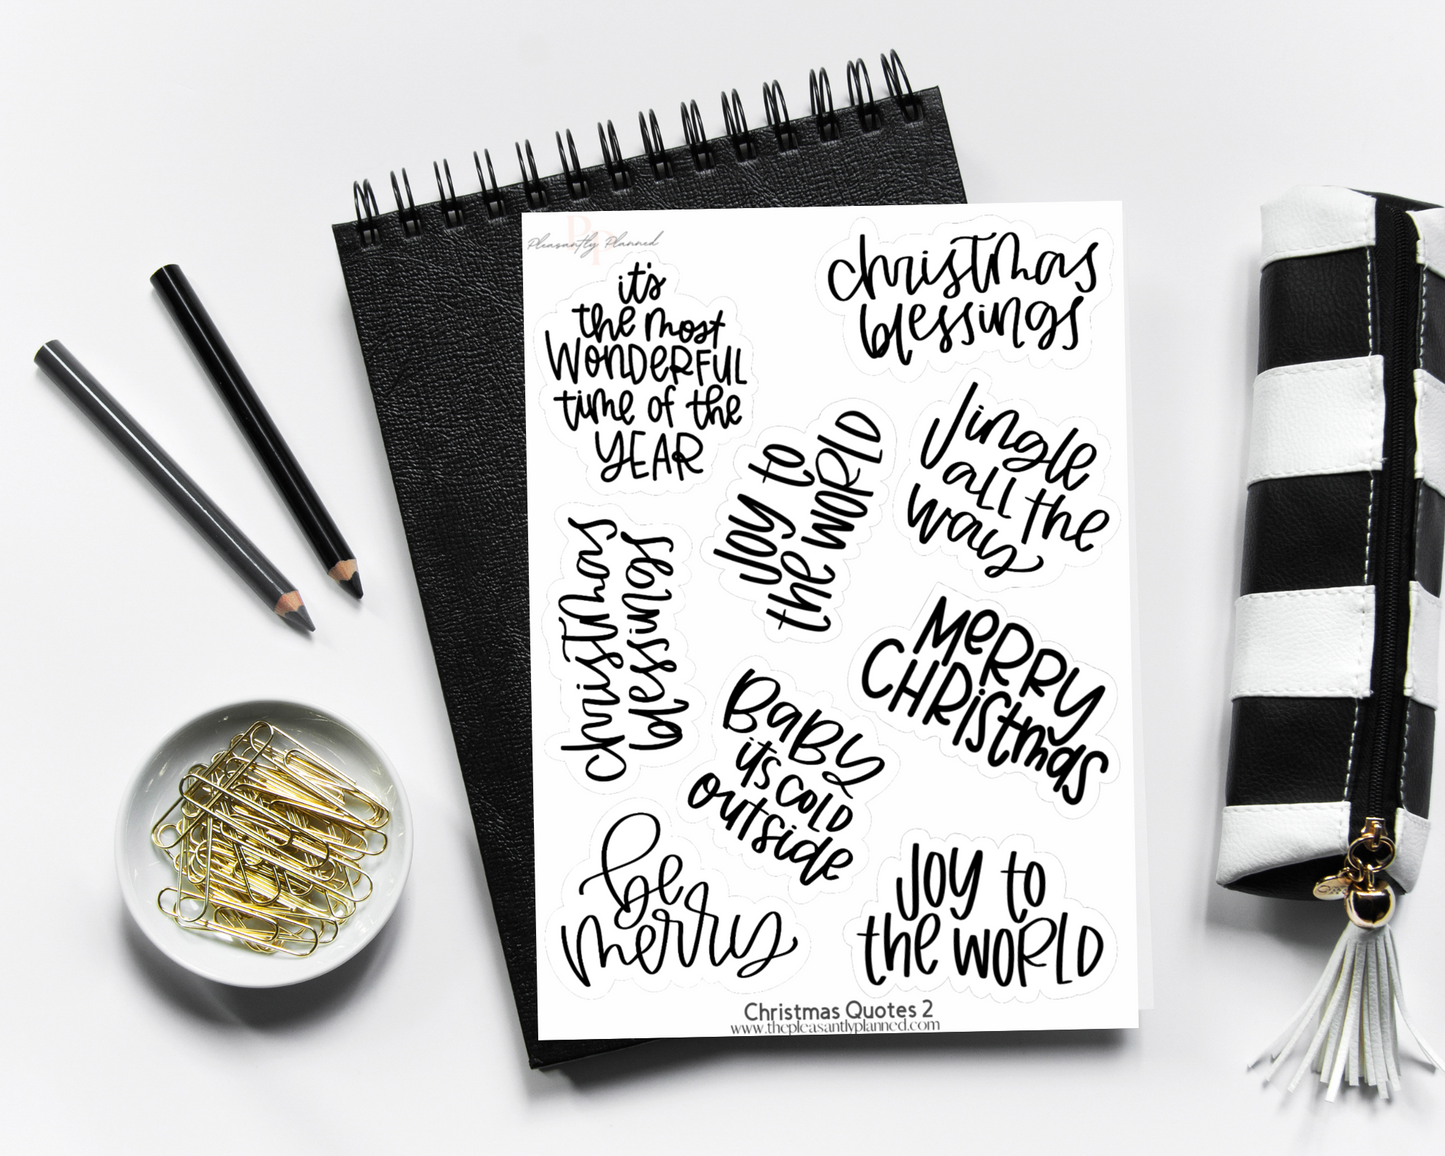 Pleasantly Planned
it's
the most
WONDERFUL
time of the
YEAR
christmas
blessings
Joy to
the WORLD
Jingle
all the
way
christmas
blessings
MeRRY
CHRiSTmas
BaBY
it's COLD
outside
be
merry
JOY to
the WORLD
Christmas Quotes 2
www.thepleasantlyplanned.com